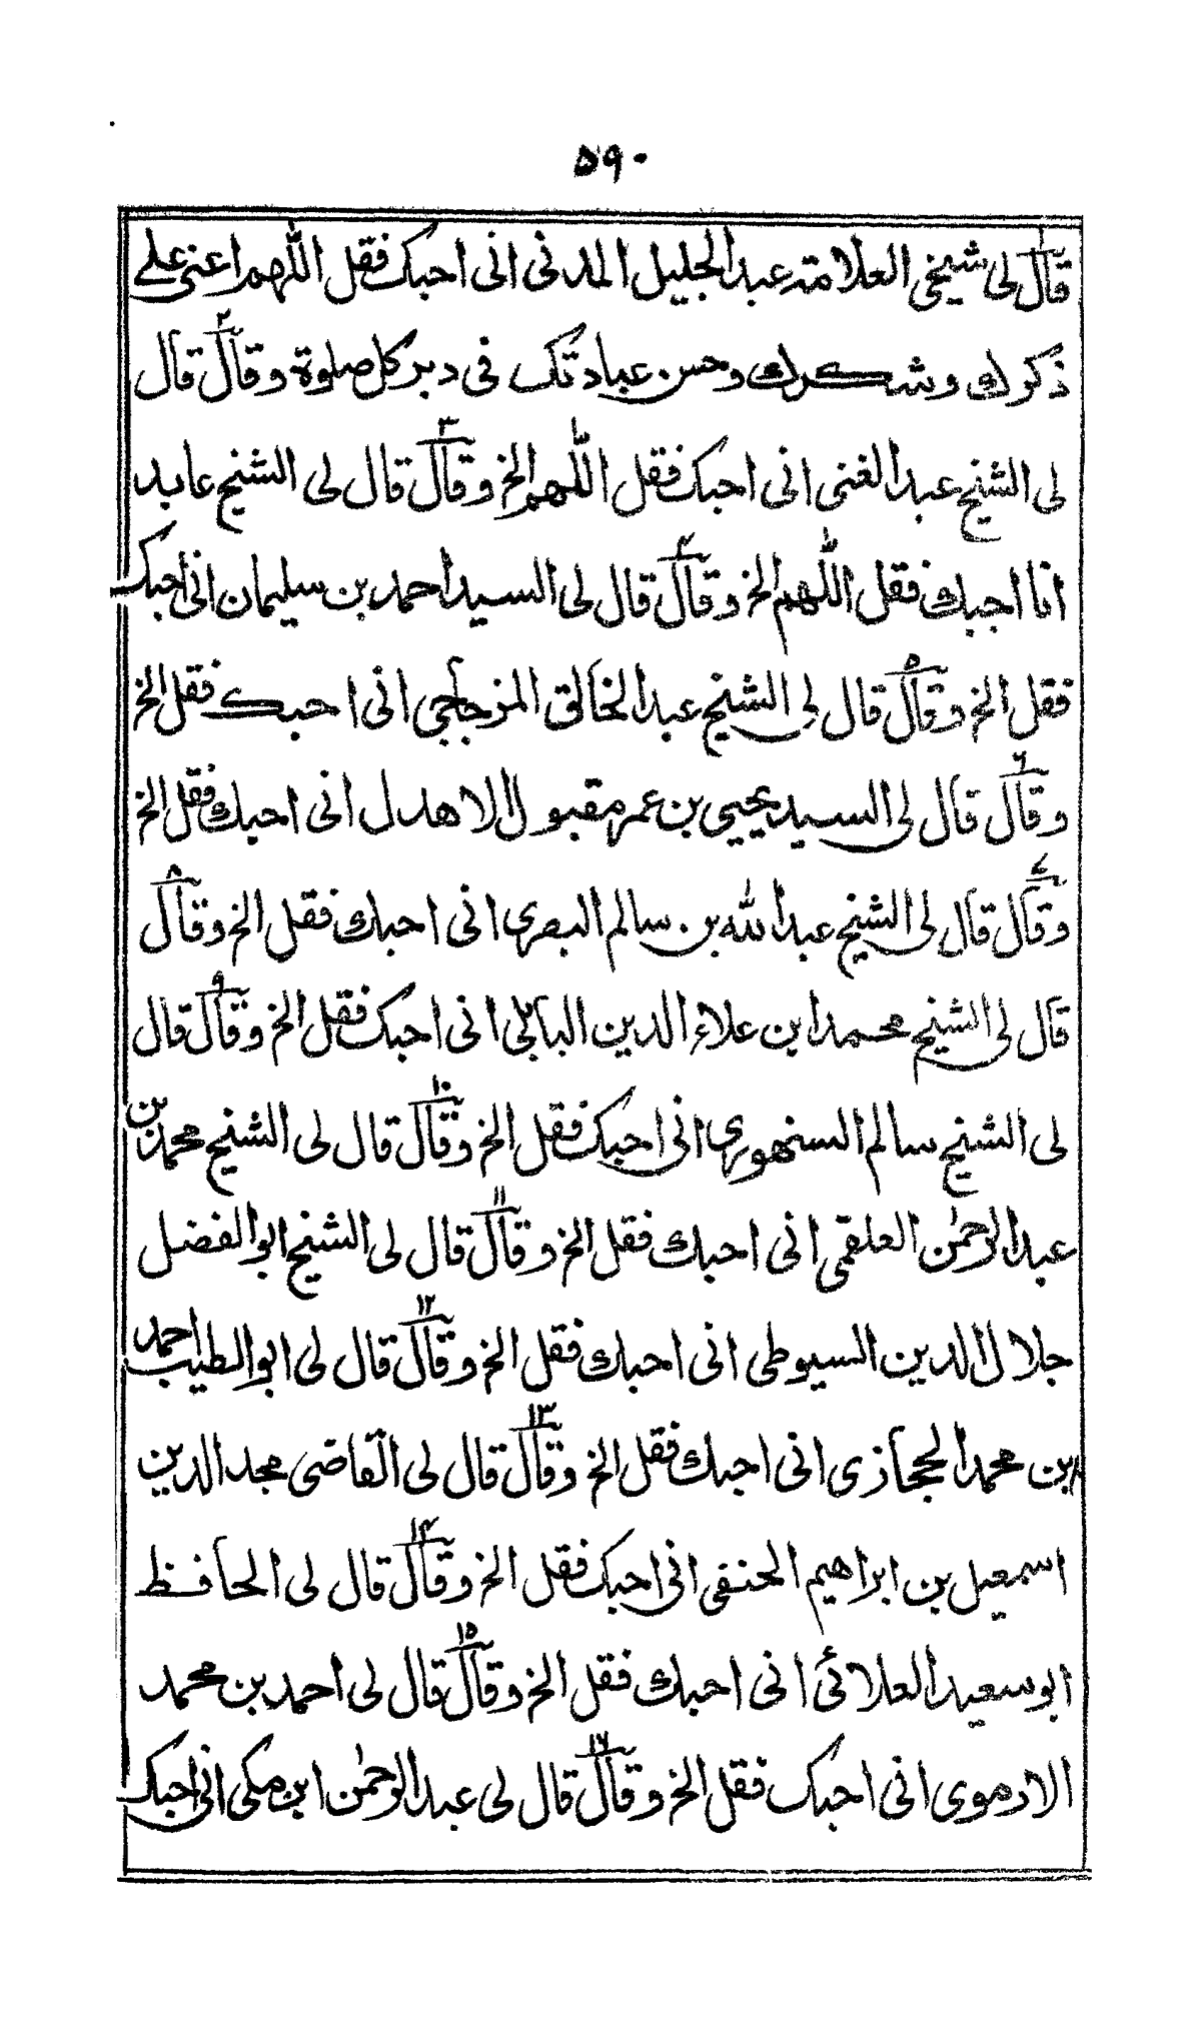 ۵۹۰
قال لی شیخی العلامة عبد الجلیل المدنی انی احبک فقل اللّٰهم اعنی علے
ذکرک وشکرک وحسن عبادتک فی دبر کل صلوة وقال۲ قال
لی الشیخ عبد الغنی انی احبک فقل اللّٰهم الخ وقال۳ قال لی الشیخ عابد
انا احبک فقل اللّٰهم الخ وقال۴ قال لی السید احمد بن سلیمان انی احبک
فقل الخ وقال۵ قال لی الشیخ عبد الخالق المزجاجی انی احبک فقل الخ
وقال۶ قال لی السید یحیی بن عمر مقبول الاهدل انی احبک فقل الخ
وقال۷ قال لی الشیخ عبد الله بن سالم البصری انی احبک فقل الخ وقال۸
قال لی الشیخ محمد ابن علاء الدین البابلی انی احبک فقل الخ وقال۹ قال
لی الشیخ سالم السنهوری انی احبک فقل الخ وقال۱۰ قال لی الشیخ محمد بن
عبد الرحمٰن العلقمی انی احبک فقل الخ وقال۱۱ قال لی الشیخ ابو الفضل
جلال الدین السیوطی انی احبک فقل الخ وقال۱۲ قال لی ابو الطیب احمد
بن محمد الحجازی انی احبک فقل الخ وقال۱۳ قال لی القاضی مجد الدین
اسمعیل بن ابراهیم الحنفی انی احبک فقل الخ وقال۱۴ قال لی الحافظ
ابو سعید العلائی انی احبک فقل الخ وقال۱۵ قال لی احمد بن محمد
الارموی انی احبک فقل الخ وقال۱۶ قال لی عبد الرحمٰن ابن مکی انی احبک